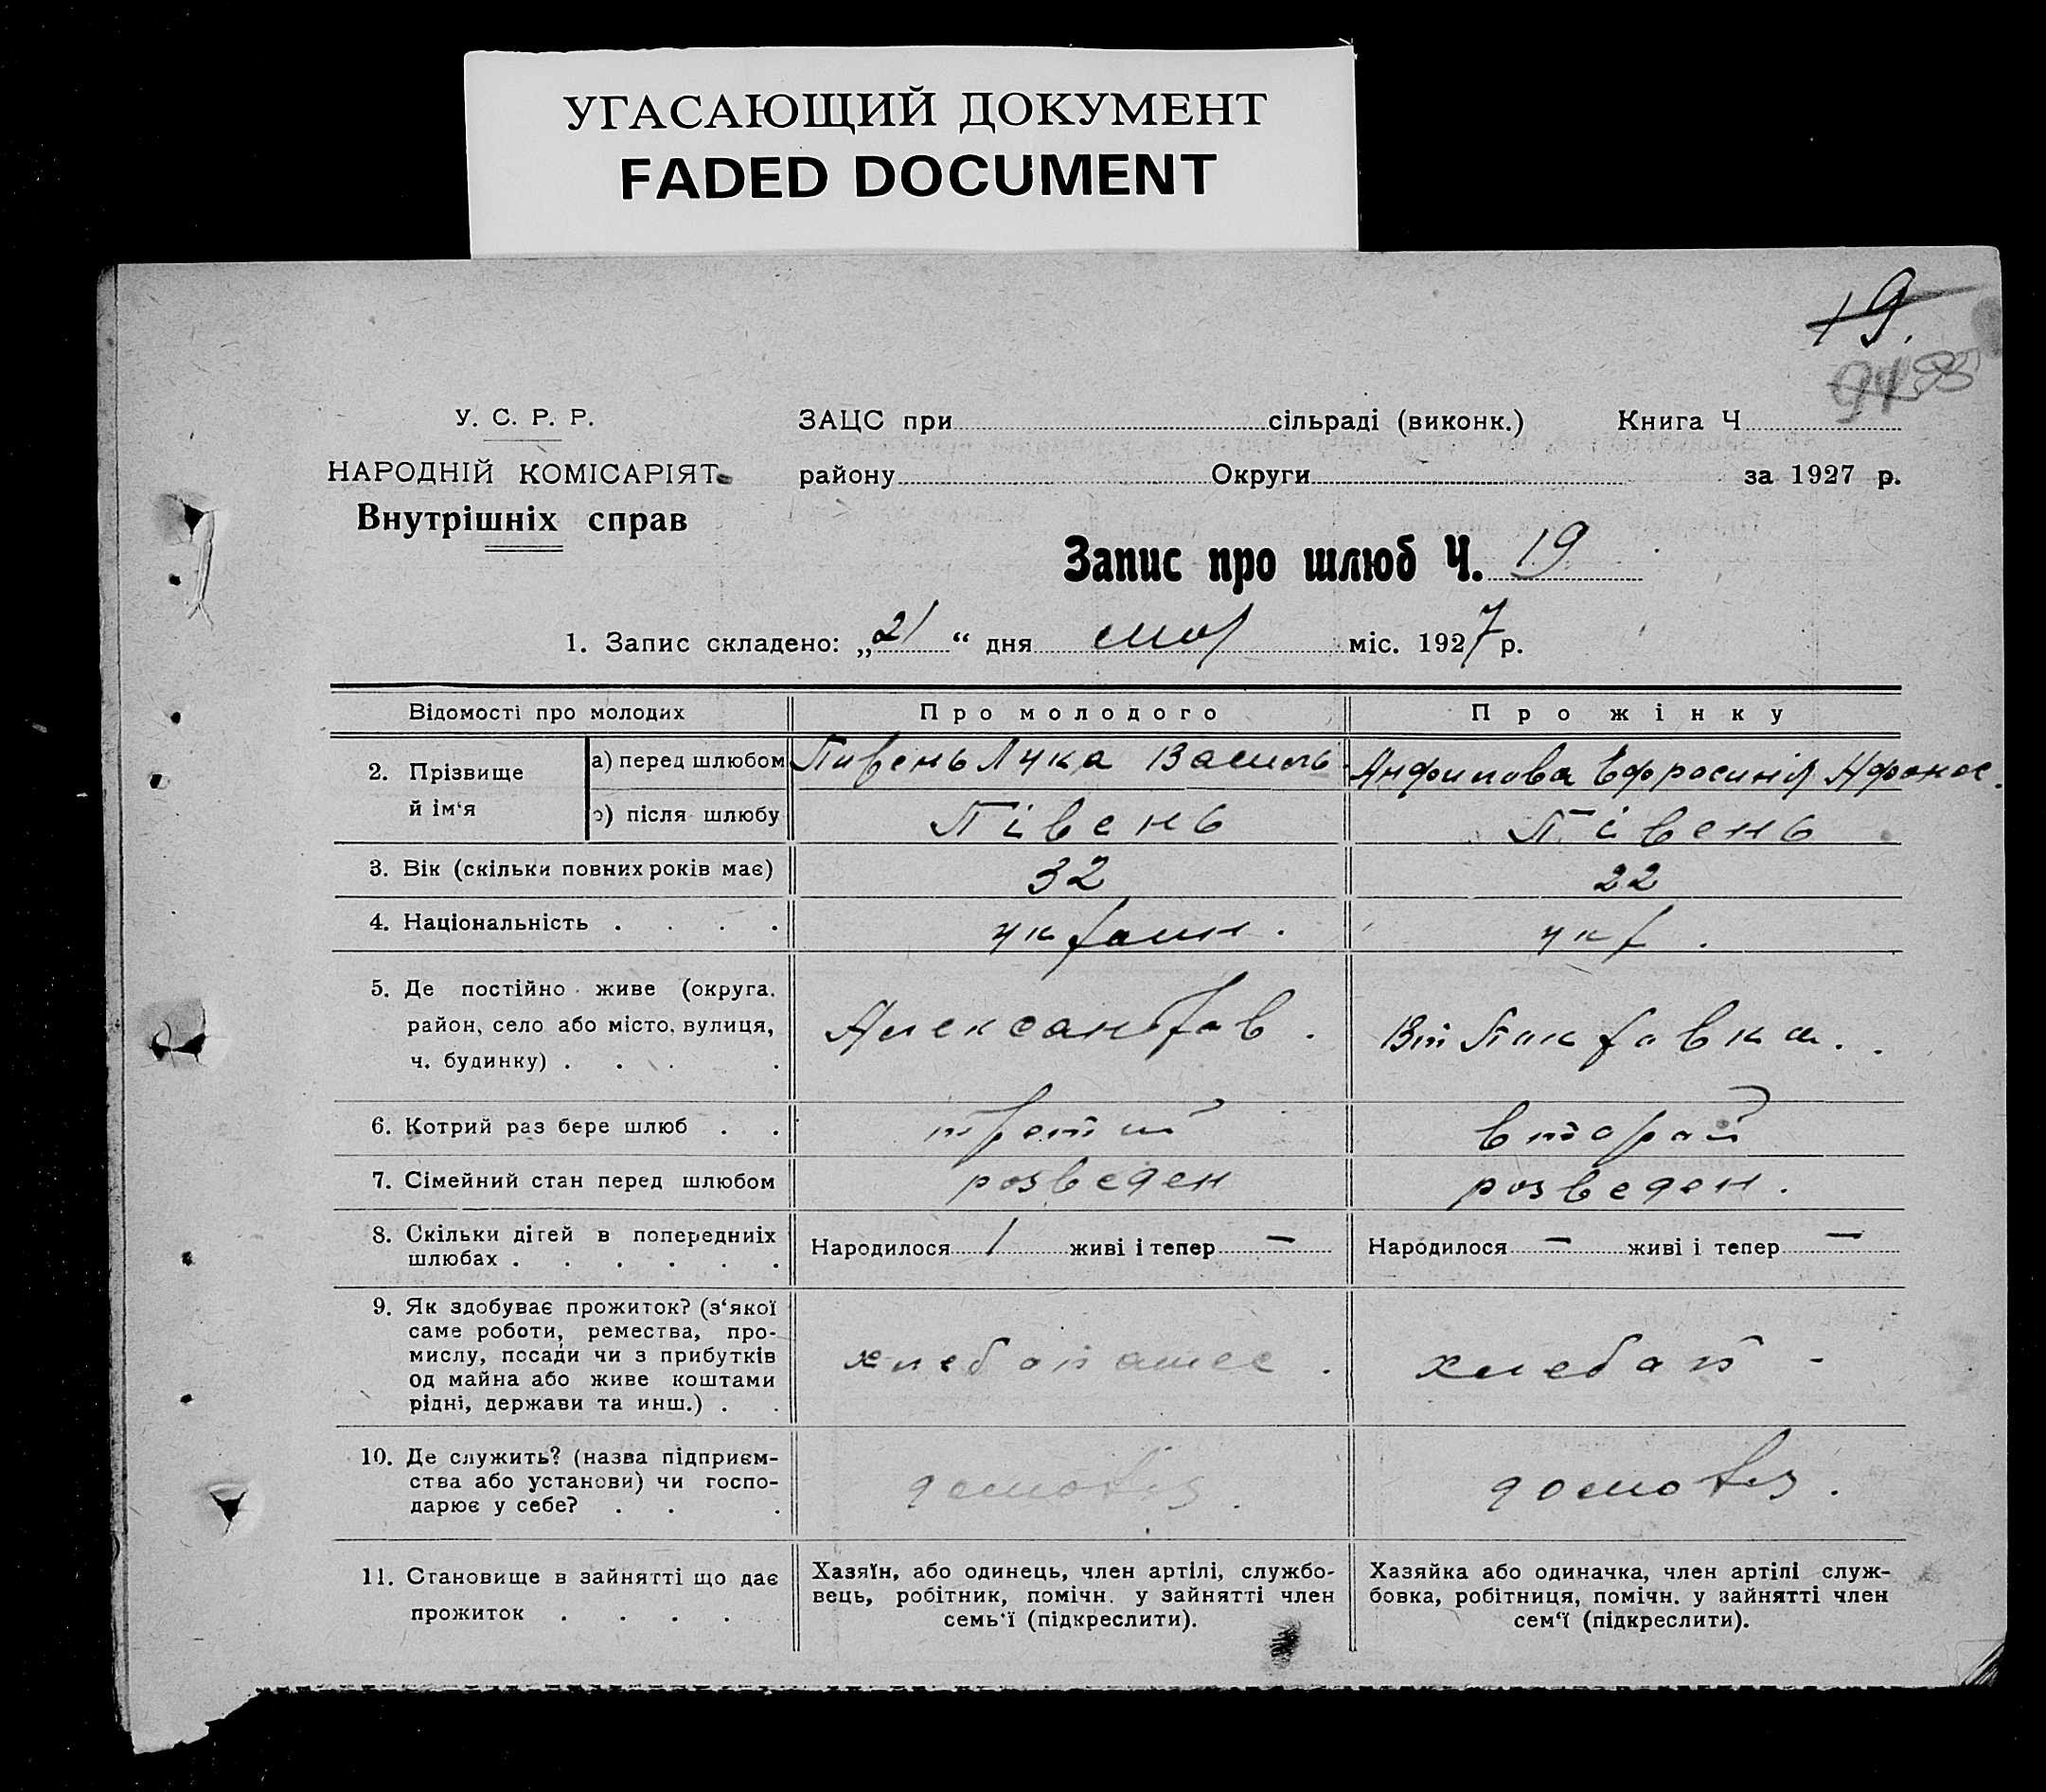 УГАСАЮЩИЙ ДОКУМЕНТ
FADED DOCUMENT
19.
У. С. Р. Р.
НАРОДНІЙ КОМІСАРІЯТ
Внутрішніх справ
ЗАЦС при сільраді (виконк.) Книга Ч
району Округи за 1927 р.
Запис про шлюб Ч. 19
1. Запис складено: „21“ дня міс. 1927 р.
Відомості про молодих Про молодого Про жінку
2. Прізвище й ім‘я
а) перед шлюбом Пивень Лука Василь Анфилова Ефросинія Афонас.
після шлюбу Півень Півень
3. Вік (скільки повних років має) 32 22
4. Національність . . . . украин. укр.
5. Де постійно живе (округа, район, село або місто, вулиця, ч. будинку) . . . Александров.
6. Котрий раз бере шлюб . . третий второй
7. Сімейний стан перед шлюбом розведен розведен.
8. Скільки дітей в попередниіх шлюбах . . . . . . Народилося 1 живі і тепер — Народилося — живі і тепер —
9. Як здобуває прожиток? (з‘якої саме роботи, ремества, про-
мислу, посади чи з прибутків
од майна або живе коштами
рідні, держави та инш.) . .
хлебопашес. хлебоп -
10. Де служить? (назва підприєм-
ства або установи) чи госпо-
дарює у себе? . . .
11. Становище в зайнятті що дає
прожиток . . . .
Хазяїн, або одинець, член артілі, службо-
вець, робітник, помічн. у зайнятті член
семь‘ї (підкреслити).
Хазяйка або одиначка, член артілі служ-
бовка, робітниця, помічн. у зайнятті член
сем‘ї (підкреслити).